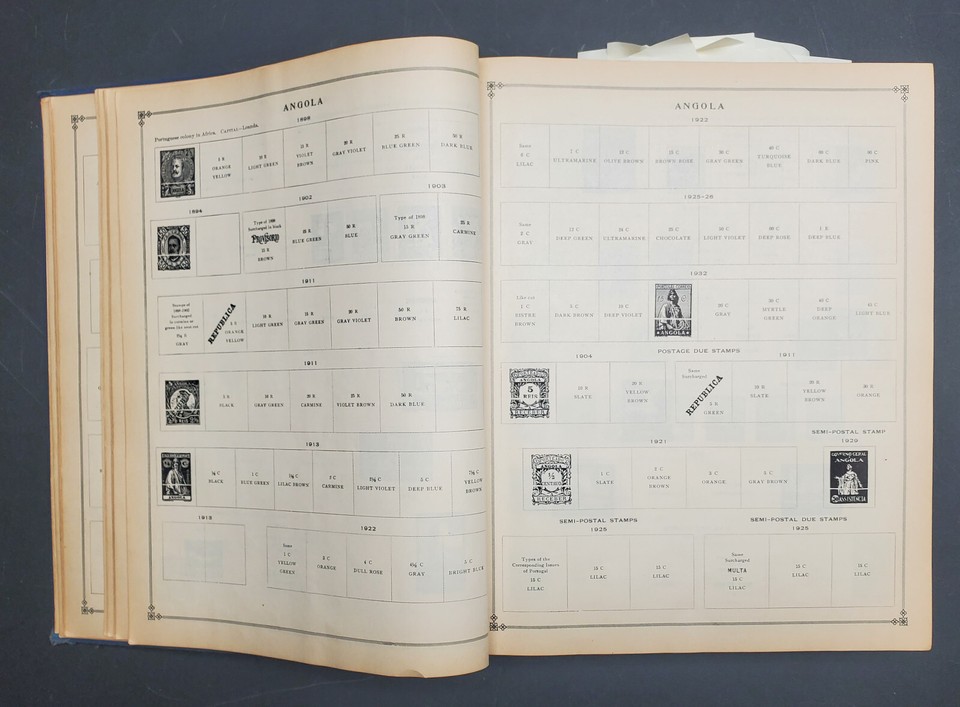 ANGOLA
Portuguese colony in Africa. CAPITAL—Loanda.
1898
5 R
ORANGE
YELLOW
10 R
LIGHT GREEN
VIOLET
BROWN
20 R
GRAY VIOLET
25 R
BLUE GREEN
50 R
DARK BLUE
1894
1902
1903
Type of 1898
Surcharged in black
PROVISORIO
25 R
BROWN
65 R
BLUE GREEN
BLUE
Type of 1898
15 R
GRAY GREEN
25 R
CARMINE
1911
Stamps of
1898-1903
Surcharged
in carmine or
green like next cut
GRAY
REPUBLICA
5 R
ORANGE
YELLOW
10 R
LIGHT GREEN
15 R
GRAY GREEN
20 R
GRAY VIOLET
50 R
BROWN
75 R
LILAC
1911
5 R
BLACK
10 R
GRAY GREEN
20 R
CARMINE
25 R
VIOLET BROWN
50 R
DARK BLUE
1913
ANGOLA
¼ C
BLACK
1 C
BLUE GREEN
1½ C
LILAC BROWN
2 C
CARMINE
LIGHT VIOLET
5 C
DEEP BLUE
7½ C
YELLOW
BROWN
1915
1922
Same
1 C
YELLOW
GREEN
3 C
ORANGE
4 C
DULL ROSE
4½ C
GRAY
5 C
BRIGHT BLUE
ANGOLA
1922
Same
6 C
LILAC
7 C
ULTRAMARINE
12 C
OLIVE BROWN
15 C
BROWN ROSE
30 C
GRAY GREEN
TURQUOISE
BLUE
40 C
DARK BLUE
60 C
PINK
1925-26
Same
2 C
GRAY
12 C
DEEP GREEN
ULTRAMARINE
25 C
CHOCOLATE
LIGHT VIOLET
DEEP ROSE
1 E
DEEP BLUE
1932
Like cut
1 C
BISTRE
BROWN
5 C
DARK BROWN
10 C
DEEP VIOLET
ANGOLA
20 C
GRAY
30 C
MYRTLE
GREEN
40 C
DEEP
ORANGE
45 C
LIGHT BLUE
POSTAGE DUE STAMPS
1904
1911
ANGOLA
5
REIS
RECEBER
10 R
SLATE
20 R
YELLOW
BROWN
Same
Surcharged
REPUBLICA
5 R
GREEN
10 R
SLATE
20 R
YELLOW
BROWN
30 R
ORANGE
SEMI-POSTAL STAMP
1921
1929
ANGOLA
½
CENTAVO
RECEBER
1 C
SLATE
ORANGE
BROWN
3 C
ORANGE
5 C
GRAY BROWN
GOVERNO GERAL
ANGOLA
ASSISTENCIA
SEMI-POSTAL STAMPS
1925
SEMI-POSTAL DUE STAMPS
1925
Types of the
Corresponding Issues
of Portugal
15 C
LILAC
15 C
LILAC
15 C
LILAC
Same
Surcharged
MULTA
15 C
LILAC
15 C
LILAC
15 C
LILAC